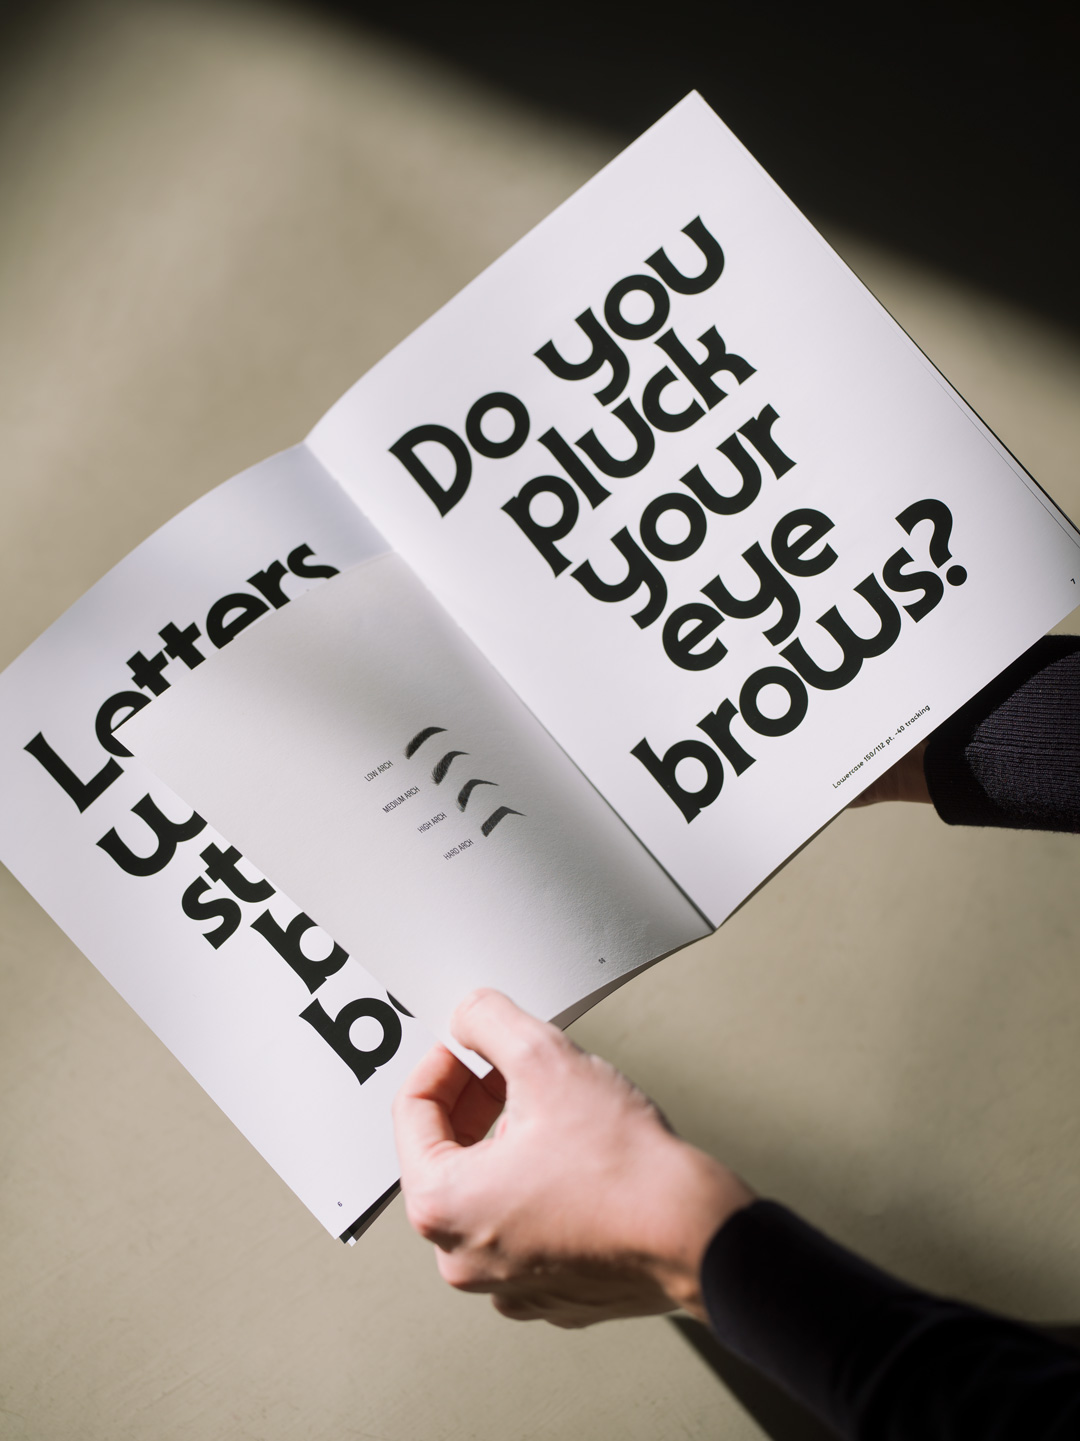 Letters
w
st
b
b
6
LOW ARCH
MEDIUM ARCH
HIGH ARCH
HARD ARCH
Do you
pluck
your
eye
brows?
Lowercase 150/112 pt. -40 tracking
7